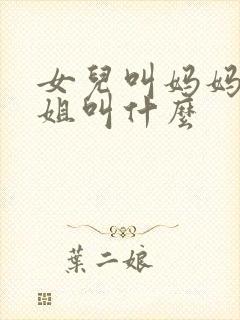 女兒叫妈妈
姐叫什麼
葉二娘